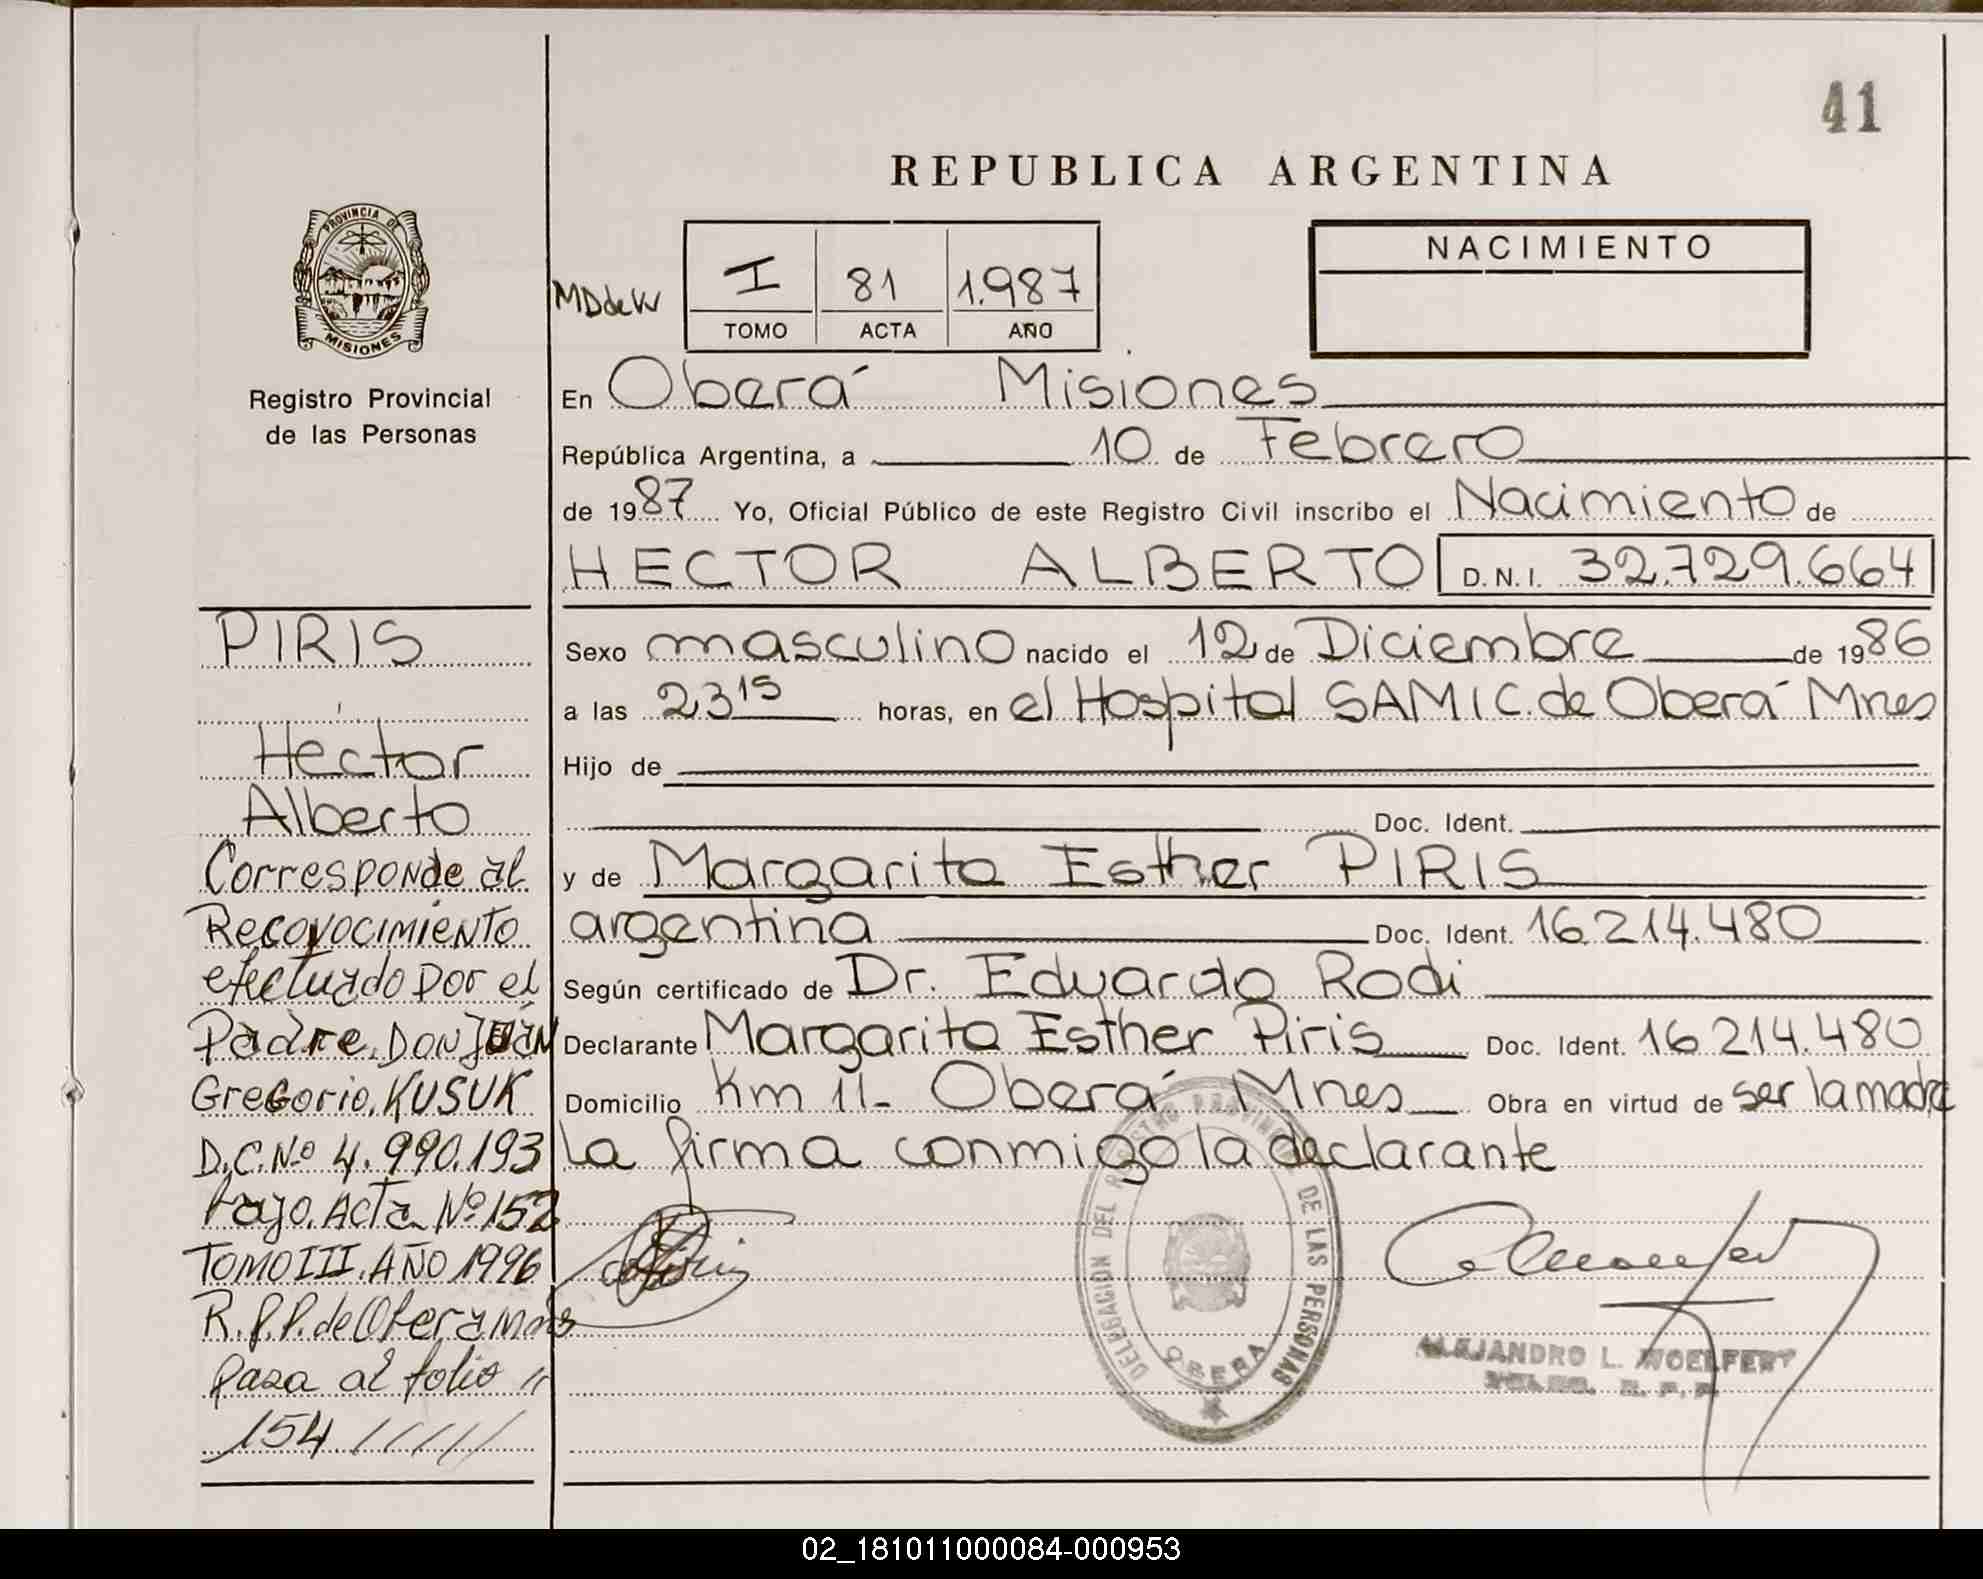 41
REPUBLICA ARGENTINA
PROVINCIA DE
MISIONES
Registro Provincial
de las Personas
MDdeW
I 81 1.987
TOMO ACTA AÑO
NACIMIENTO
En Oberá Misiones
República Argentina, a 10 de Febrero
de 1987 Yo, Oficial Público de este Registro Civil inscribo el Nacimiento de
HECTOR ALBERTO D.N.I. 32.729.664
Sexo masculino nacido el 12 de Diciembre de 1986
a las 23 15 horas, en el Hospital SAMIC. de Oberá Mnes
Hijo de
Doc. Ident.
y de Margarita Esther PIRIS
argentina Doc. Ident. 16.214.480
Según certificado de Dr. Eduardo Rodi
Declarante Margarita Esther Piris Doc. Ident. 16 214.480
Domicilio Km 11- Oberá Mnes Obra en virtud de ser la madre
La firma conmigo la declarante
PIRIS
Hector
Alberto
Corresponde al
Reconocimiento
efectuado por el
Padre. DON JUAN
Gregorio. KUSUK
D.C.Nº 4.990.193
bajo. Acta Nº 152
TOMO III. AÑO 1996
R.P.P. de Obera Mnes
pasa al folio
154
DELEGACION DEL REGISTRO PROVINCIAL DE LAS PERSONAS
OBERA
ALEJANDRO L. WOELFERT
02_181011000084-000953